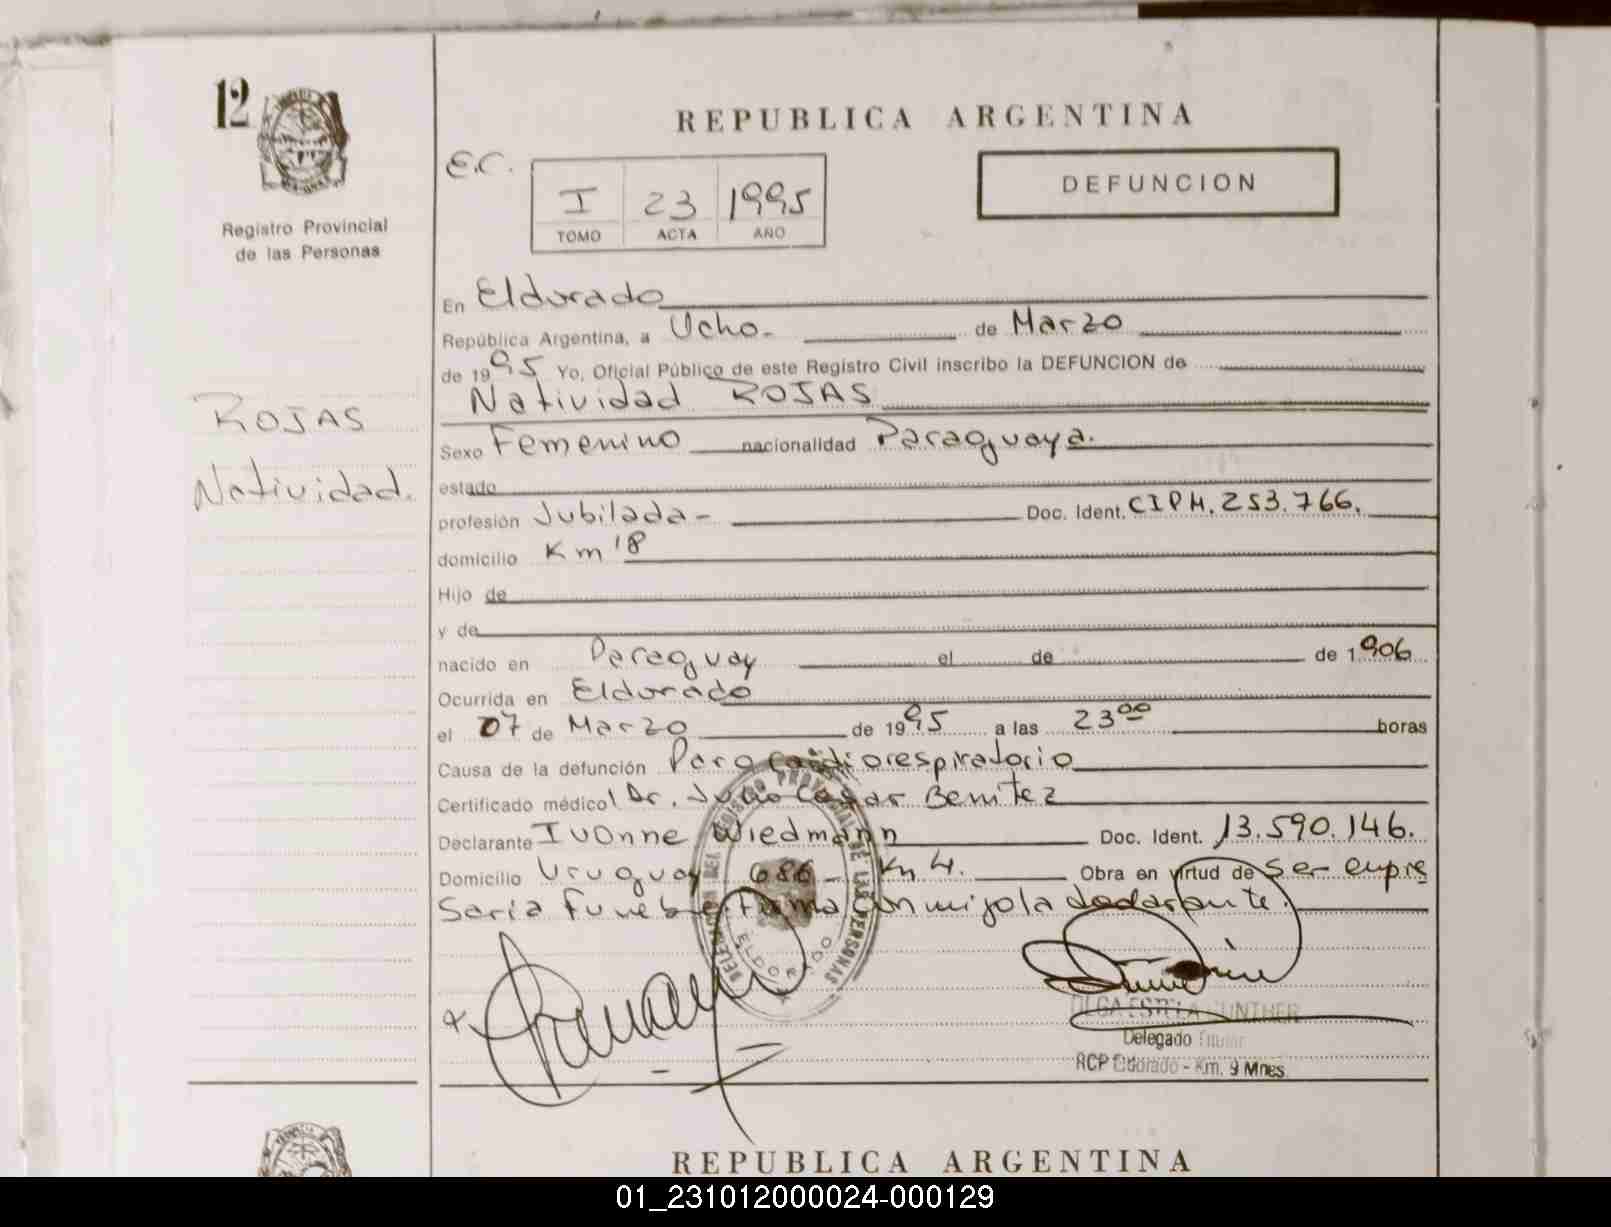 12
REPUBLICA ARGENTINA
E.C.
I 23 1995
TOMO ACTA AÑO
DEFUNCION
Registro Provincial
de las Personas
ROJAS
Natividad.
En Eldorado
República Argentina, a Ocho - de Marzo
de 1995 Yo, Oficial Público de este Registro Civil inscribo la DEFUNCION de
Natividad ROJAS
Sexo Femenino nacionalidad Paraguaya.
estado
profesión Jubilada - Doc. Ident. CIPM. 253.766.
domicilio Km 18
Hijo de
y de
nacido en Paraguay el de de 1906
Ocurrida en Eldorado
el 07 de Marzo de 1995 a las 23⁰⁰ horas
Causa de la defunción Paro Cardiorespiratorio
Certificado médico Dr. Benitez
Declarante Ivonne Wiedmann Doc. Ident. 13.590.146.
Domicilio Uruguay 686 - Km 4. Obra en virtud de Ser empre
saria Funebre. Firma conmigo la declarante.
DELEGACION DEL REGISTRO PROVINCIAL DE LAS PERSONAS
ELDORADO
OLGA ESTELA GUNTHER
Delegado Titular
RCP Eldorado - Km. 9 Mnes.
REPUBLICA ARGENTINA
01_231012000024-000129